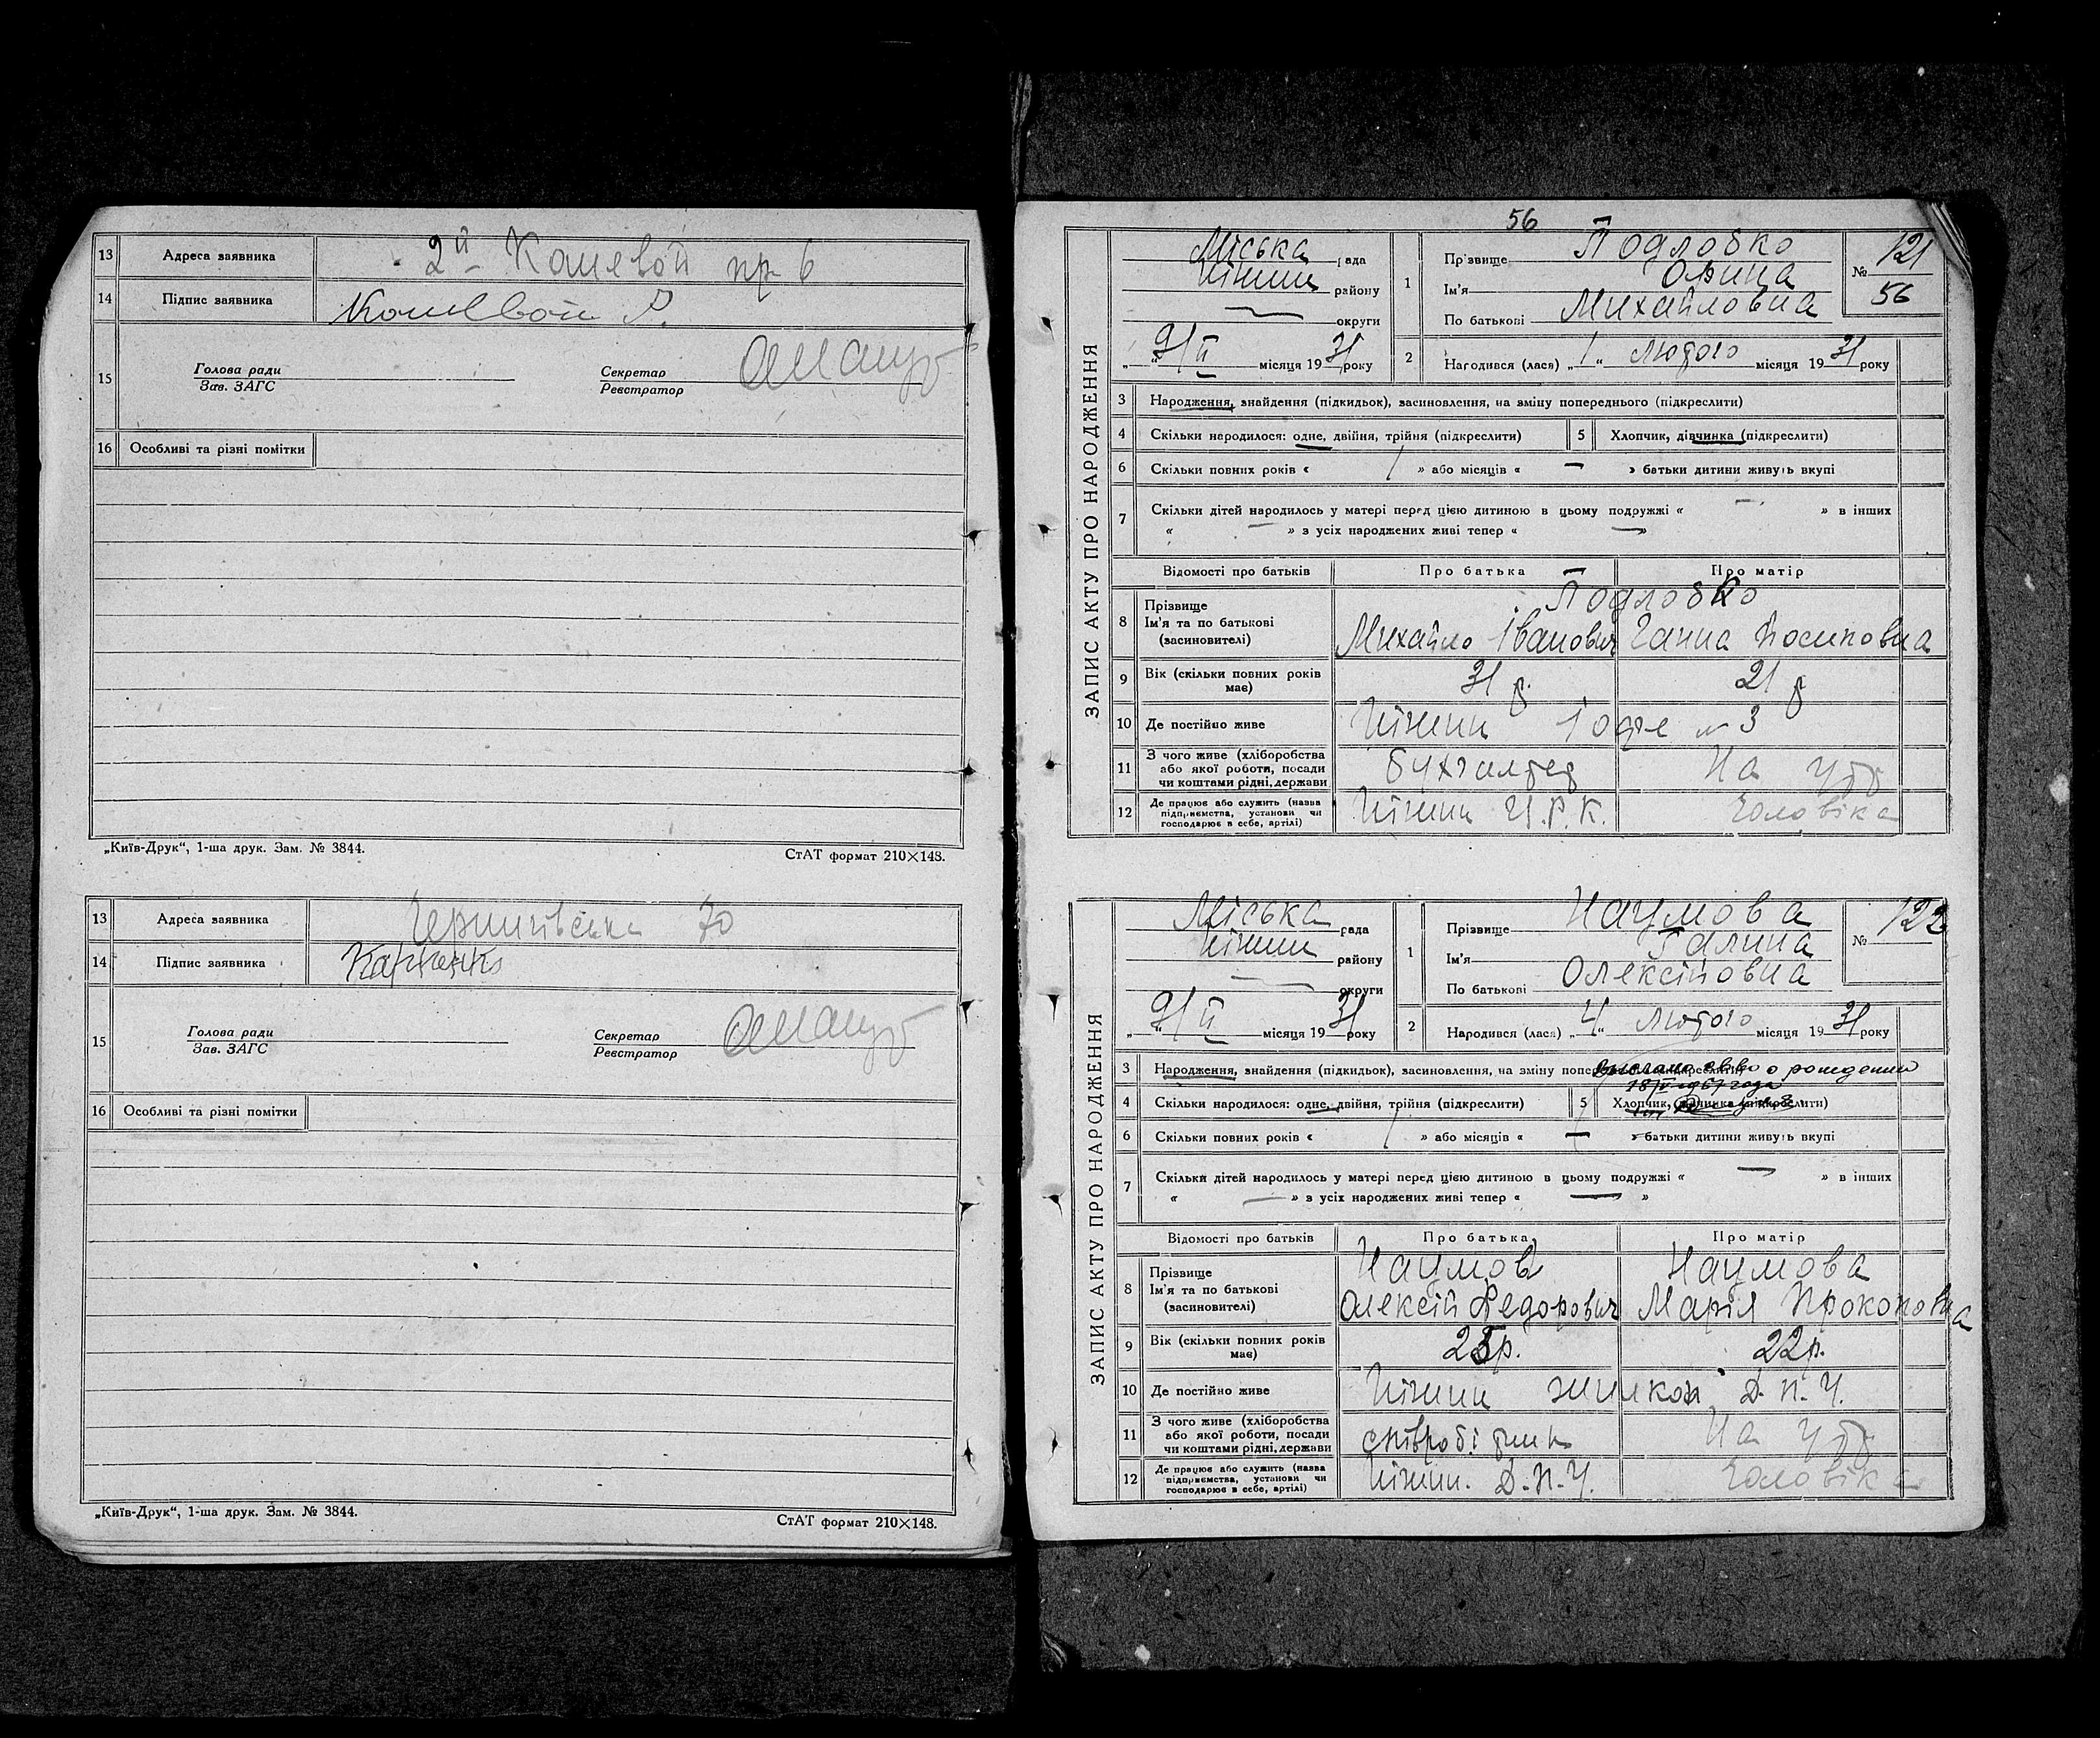 13 Адреса заявника 2й Кошевой пр 6
14 Підпис заявника Кошевой Р.
15 Голова ради Секретар
Зав. ЗАГС Реєстратор
16 Особливі та різні помітки
„Київ-Друк“, 1-ша друк. Зам. № 3844. СтАТ формат 210×148.
13 Адреса заявника Чернигівська 70
14 Підпис заявника
15 Голова ради Секретар
Зав. ЗАГС Реєстратор
16 Особливі та різні помітки
„Київ-Друк“, 1-ша друк. Зам. № 3844. СтАТ формат 210×148.
56
ЗАПИС АКТУ ПРО НАРОДЖЕННЯ
Міська рада
Ніжин району
— округи
„9/II місяця 1931 року
1 Прізвище Подлобко
Ім'я Орина
По батькові Михайловна
№ 121
56
2 Народився (лася) „1“ Лютого місяця 1931 року
3 Народження, знайдення (підкидьок), засиновлення, на зміну попереднього (підкреслити)
4 Скільки народилося: одне, двійня, трійня (підкреслити) 5 Хлопчик, дівчинка (підкреслити)
6 Скільки повних років « / » або місяців « — » батьки дитини живуть вкупі
7 Скільки дітей народилось у матері перед цією дитиною в цьому подружжі « — » в інших
« — » з усіх народжених живі тепер « — »
Відомості про батьків Про батька Про матір
8 Прізвище Подлобко
Ім'я та по батькові
(засиновителі) Михайло Іванович Ганна Йосиповна
9 Вік (скільки повних років
має) 31 р. 21 р
10 Де постійно живе Ніжин № 3
11 З чого живе (хліборобства
або якої роботи, посади
чи коштами рідні, держави бухгалтер На утр
12 Де працює або служить (назва
підприємства, установи чи
господарює в себе, артілі) Ніжин Ц.Р.К. Чоловіка
ЗАПИС АКТУ ПРО НАРОДЖЕННЯ
Міська рада
Ніжин району
— округи
„9/II місяця 1931 року
1 Прізвище Наумова
Ім'я Галина
По батькові Олексійовна
№ 122
2 Народився (лася) „4“ Лютого місяця 1931 року
3 Народження, знайдення (підкидьок), засиновлення, на зміну попереднього (підкреслити)
о рождении
4 Скільки народилося: одне, двійня, трійня (підкреслити) 5 Хлопчик, дівчинка (підкреслити)
6 Скільки повних років « / » або місяців « — » батьки дитини живуть вкупі
7 Скільки дітей народилось у матері перед цією дитиною в цьому подружжі « — » в інших
« — » з усіх народжених живі тепер « — »
Відомості про батьків Про батька Про матір
8 Прізвище Наумов Наумова
Ім'я та по батькові
(засиновителі) Олексій Федорович Марія Прокоповна
9 Вік (скільки повних років
має) 25р. 22р.
10 Де постійно живе Ніжин Д.П.У.
11 З чого живе (хліборобства
або якої роботи, посади
чи коштами рідні, держави співробітник На утр
12 Де працює або служить (назва
підприємства, установи чи
господарює в себе, артілі) Ніжин. Д.П.У. Чоловіка